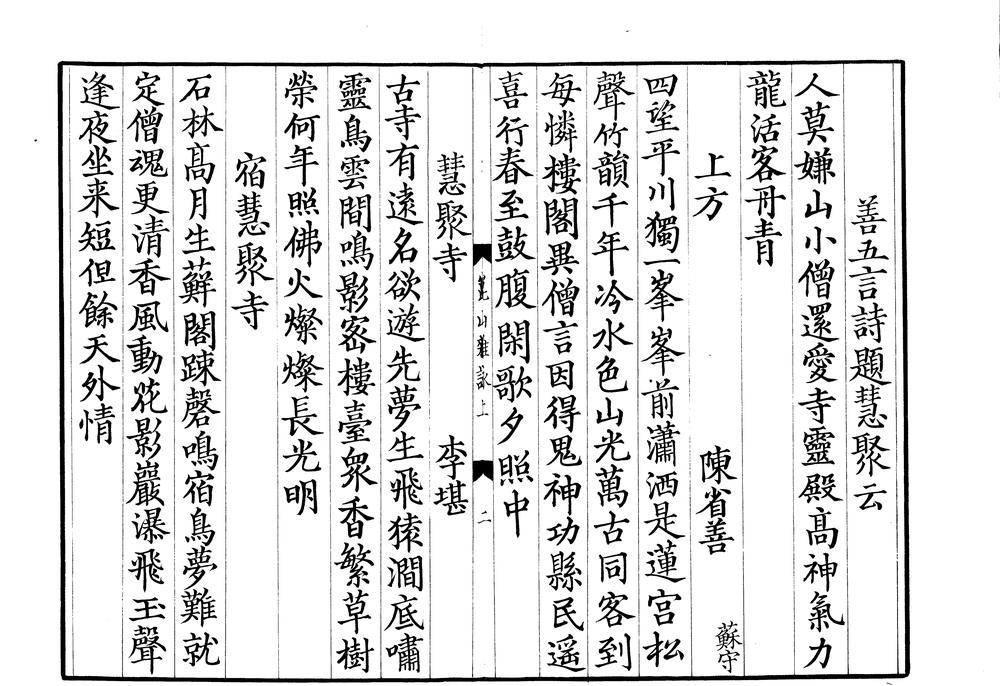 善五言詩題慧聚云
人莫嫌山小僧還愛寺靈殿高神氣力
龍活客丹青
上方 陳省善 蘇守
四望平川獨一峯峯前瀟洒是蓮宫松
聲竹韻千年冷水色山光萬古同客到
每憐樓閣異僧言因得鬼神功縣民遥
喜行春至鼓腹閑歌夕照中
崑山雜詠上 二
慧聚寺 李堪
古寺有遠名欲遊先夢生飛猿澗底嘯
靈鳥雲間鳴影密樓臺衆香繁草樹
榮何年照佛火燦燦長光明
宿慧聚寺
石林高月生蘚閣踈磬鳴宿鳥夢難就
定僧魂更清香風動花影巖瀑飛玉聲
逢夜坐来短但餘天外情